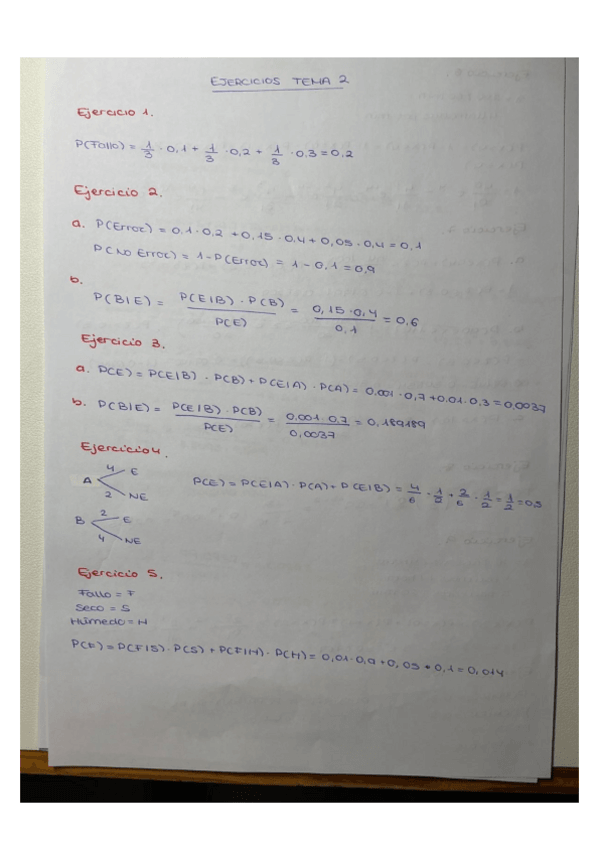 EJERCICIOS TEMA 2
Ejercicio 1.
P(Fallo) = 1/3 · 0,1 + 1/3 · 0,2 + 1/3 · 0,3 = 0,2
Ejercicio 2.
a. P(Error) = 0,1 · 0,2 + 0,15 · 0,4 + 0,05 · 0,4 = 0,1
P(No Error) = 1 - P(Error) = 1 - 0,1 = 0,9
b.
P(B|E) = P(E|B) · P(B) / P(E) = 0,15 · 0,4 / 0,1 = 0,6
Ejercicio 3.
a. P(E) = P(E|B) · P(B) + P(E|A) · P(A) = 0,001 · 0,7 + 0,01 · 0,3 = 0,0037
b. P(B|E) = P(E|B) · P(B) / P(E) = 0,001 · 0,7 / 0,0037 = 0,189189
Ejercicio 4.
A 4 E
2 NE
P(E) = P(E|A) · P(A) + P(E|B) = 4/6 · 1/2 + 2/6 · 1/2 = 1/2 = 0,5
B 2 E
4 NE
Ejercicio 5.
Fallo = F
Seco = S
Húmedo = H
P(F) = P(F|S) · P(S) + P(F|H) · P(H) = 0,01 · 0,9 + 0,05 * 0,1 = 0,014